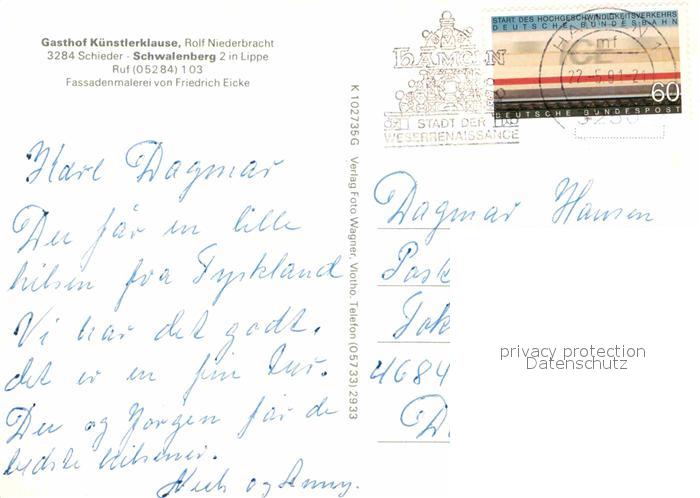 Gasthof Künstlerklause, Rolf Niederbracht
3284 Schieder - Schwalenberg 2 in Lippe
Ruf (05284) 103
Fassadenmalerei von Friedrich Eicke
Kære Dagmar
Du får en lille
hilsen fra Tyskland
Vi har det godt,
det er en fin tur.
Du og Jørgen får de
bedste hilsener.
og Anny.
K 102735G Verlag Foto Wagner, Vlotho, Telefon (05733) 2933
HAMELN
STADT DER
WESERRENAISSANCE
START DES HOCHGESCHWINDIGKEITSVERKEHRS
DEUTSCHE BUNDESBAHN
22.-5.91-21
60
DEUTSCHE BUNDESPOST
Dagmar Hansen
Post
Tok
4684
privacy protection
Datenschutz